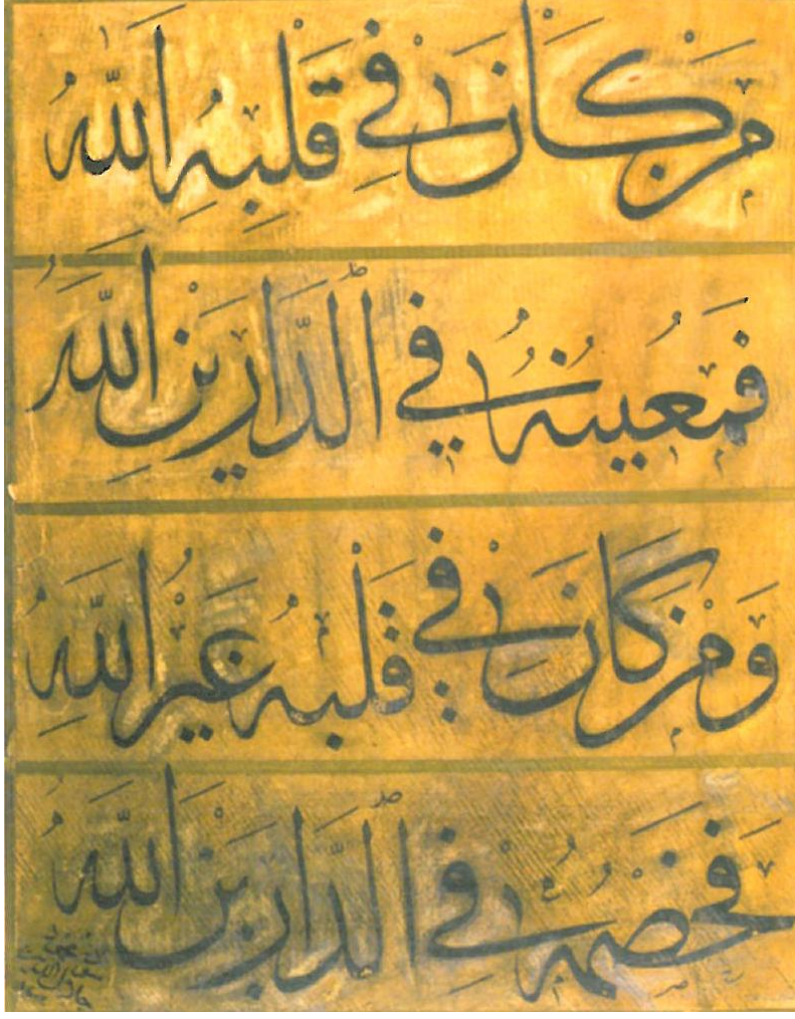 مَنْ كَانَ فِي قَلْبِهِ اللّٰهُ
فَمُعِينُهُ فِي الدَّارَيْنِ اللّٰهُ
وَمَنْ كَانَ فِي قَلْبِهِ غَيْرُ اللّٰهِ
فَخَصْمُهُ فِي الدَّارَيْنِ اللّٰهُ